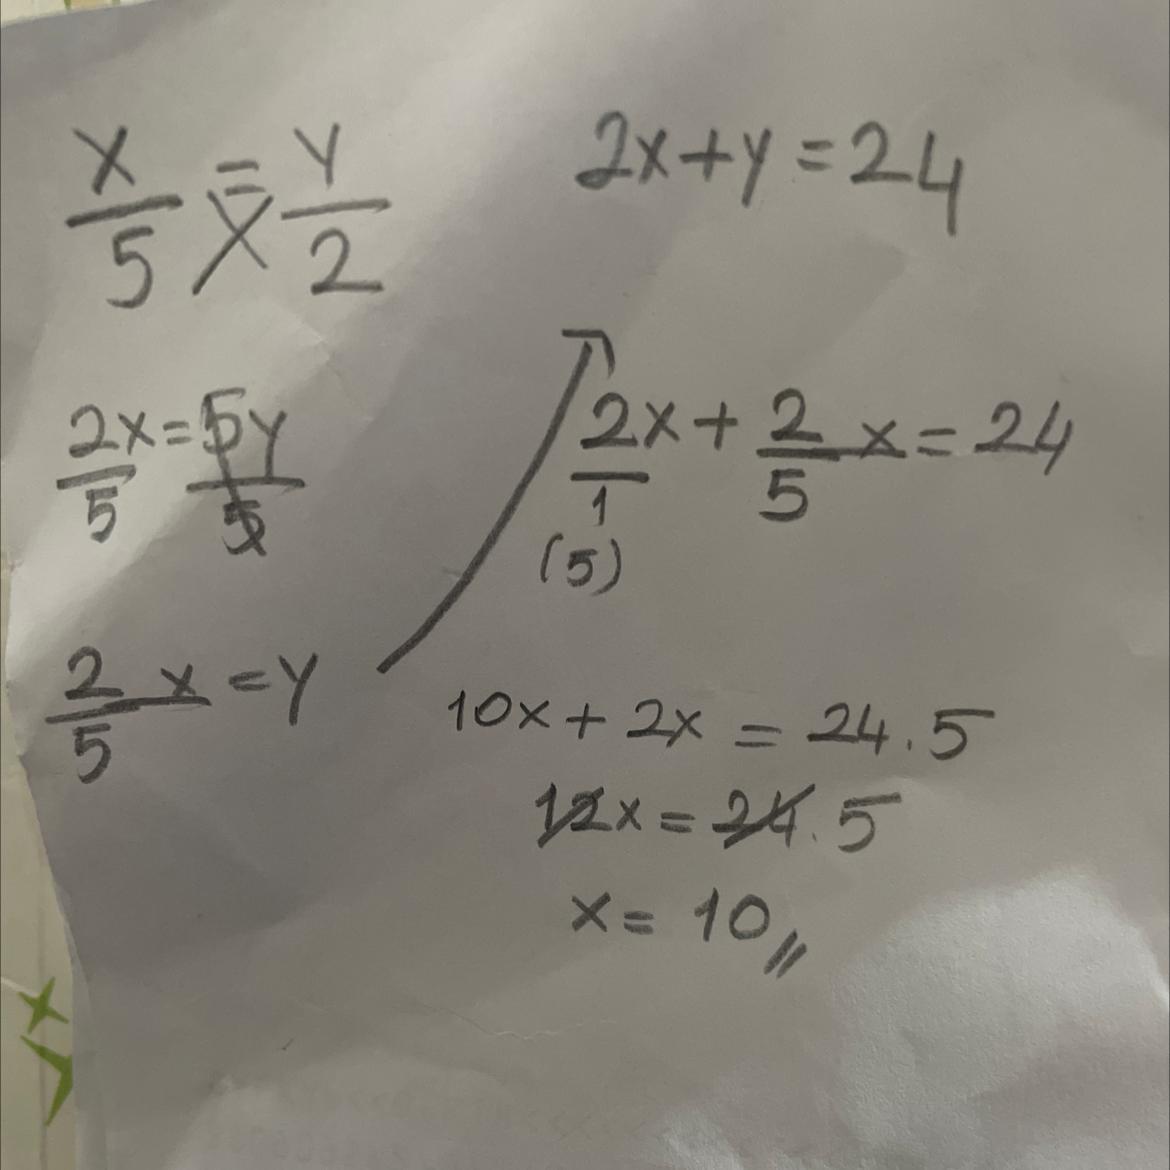 x/5 = y/2
2x+y=24
2x/5=5y/5
2/5 x=y
2x/1+2/5 x=24
(5)
10x+2x=24.5
12x=24.5
x=10